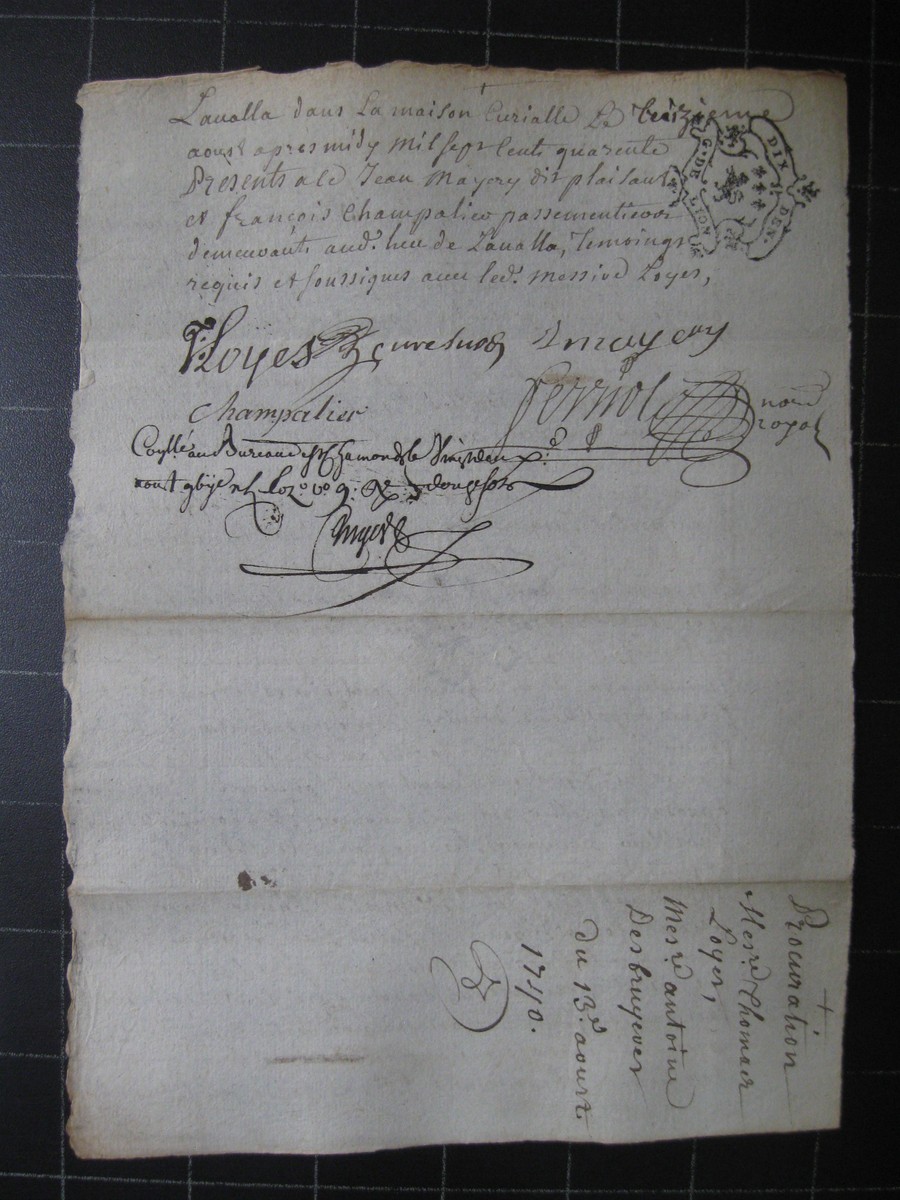 Lavalla dans La maison Curialle Le treizieme
aoust apres midy mil sept Cents quarente
Présents a ce Jean Mayery dit plaisant
et françois Champalier passementiers
demeurants aud. lieu de Lavalla, Temoings
requis et soussignes avec led. Messire Loyes,
G. DE
DIX
DEN.
Loÿes curé susd Jmayery
Champalier
Ferriol
nore
royal
Conllé au Bureau de St Chamond le Vingt deux
aoust douze sols
Procuration
Mesre. Thomas
Loyes,
Mesre. antoine
Desbruyeres
du 13e. aoust
1740.